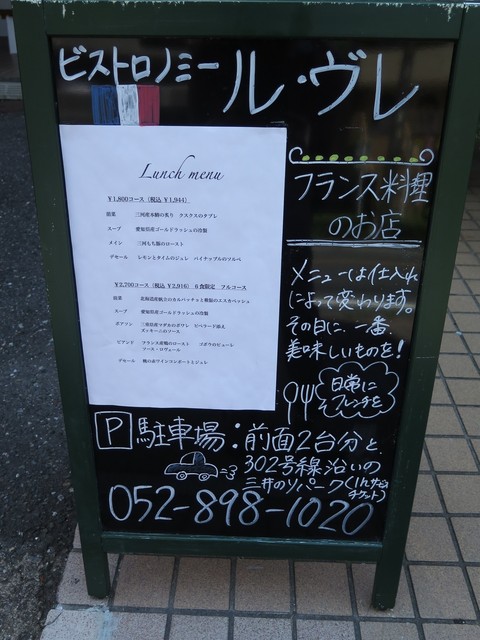 ビストロノミー ル・ヴレ
Lunch menu
¥1,800コース（税込 ¥1,944）
前菜
スープ 愛知県産ゴールドラッシュの冷製
メイン 三河もち豚のロースト
デセール レモンとタイムのジュレ パイナップルのソルベ
¥2,700コース（税込 ¥2,916） 6食限定 フルコース
前菜
スープ 愛知県産ゴールドラッシュの冷製
ポアソン
ズッキーニのソース
ビアンド フランス産鴨のロースト ゴボウのピューレ
デセール 桃の赤ワインコンポートとジュレ
フランス料理
のお店
メニューは仕入れ
によって変わります。
その日に、一番、
美味しいものを!
日常に
フレンチを
P 駐車場：前面2台分と、
302号線沿いの
三井のリパーク(1hサービス
チケット)
052-898-1020